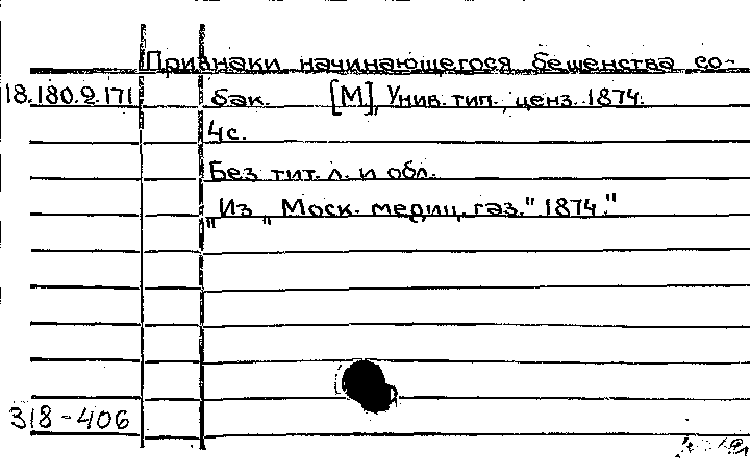 Признаки начинающегося бешенства со-
18.180.9.171 бак. [М], Унив. тип., ценз. 1874.
4с.
Без тит. л. и обл.
"Из „Моск. медиц. газ." 1874."
318-406